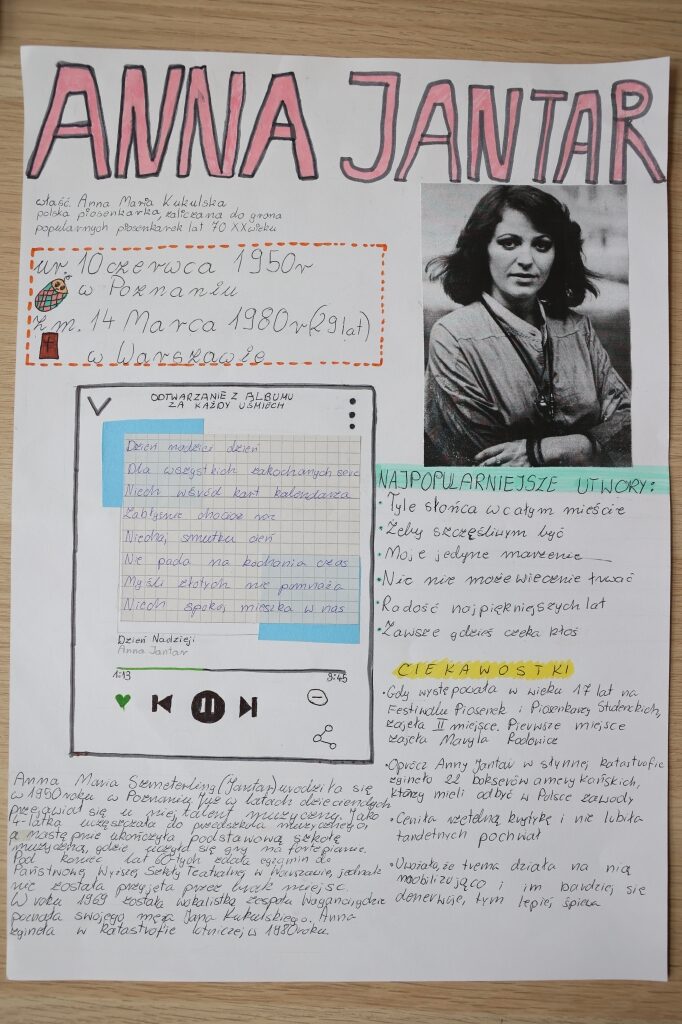 ANNA JANTAR
właść. Anna Maria Kukulska
polska piosenkarka, zaliczana do grona
popularnych piosenkarek lat 70 XX wieku
ur. 10 czerwca 1950r
w Poznaniu
zm. 14 Marca 1980r (29 lat)
w Warszawie
ODTWARZANIE Z ALBUMU
ZA KAŻDY UŚMIECH
Dzień nadziei dzień
Dla wszystkich zakochanych serc
Niech wśród kart kalendarza
Zabłyśnie chociaż raz
Niechaj smutku cień
Nie pada na kochania czas
Myśli złotych nie pomnaża
Niech spokój mieszka w nas
Dzień Nadzieji
Anna Jantar
1:13
3:45
NAJPOPULARNIEJSZE UTWORY:
• Tyle słońca w całym mieście
• Żeby szczęśliwym być
• Moje jedyne marzenie
• Nic nie może wiecznie trwać
• Radość najpiękniejszych lat
• Zawsze gdzieś czeka ktoś
CIEKAWOSTKI
• Gdy występowała w wieku 17 lat na
Festiwalu Piosenek i Piosenkarzy Studenckich,
zajęła II miejsce. Pierwsze miejsce
zajęła Maryla Rodowicz
• Oprócz Anny Jantar w słynnej katastrofie
zginęło 22 bokserów amerykańskich,
którzy mieli odbyć w Polsce zawody
• Ceniła rzetelną krytykę i nie lubiła
tandetnych pochwał
• Uważała, że trema działa na nią
mobilizująco i im bardziej się
denerwuje, tym lepiej śpiewa
Anna Maria Szmeterling (Jantar) urodziła się
w 1950 roku w Poznaniu. Już w latach dziecięcych
przejawiał się u niej talent muzyczny. Jako
4-latka uczęszczała do przedszkola muzycznego,
a następnie ukończyła podstawową szkołę
muzyczną, gdzie uczył się gry na fortepianie.
Pod koniec lat 60-tych zdała egzamin do
Państwowej Wyższej Szkoły Teatralnej w Warszawie, jednak
nie została przyjęta przez brak miejsc.
W roku 1969 została wokalistką zespołu Waganci, gdzie
poznała swojego męża Jana Kukulskiego. Anna
zginęła w katastrofie lotniczej w 1980 roku.